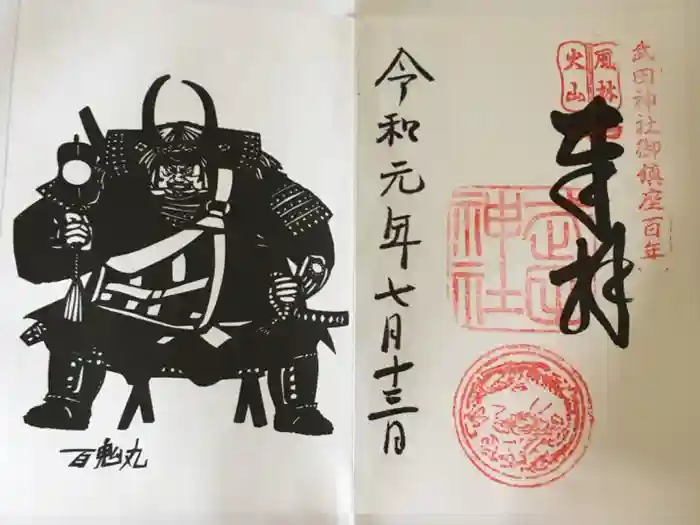 武田神社御鎮座百年
風林
火山
奉拝
武田
神社
令和元年七月十三日
百鬼丸